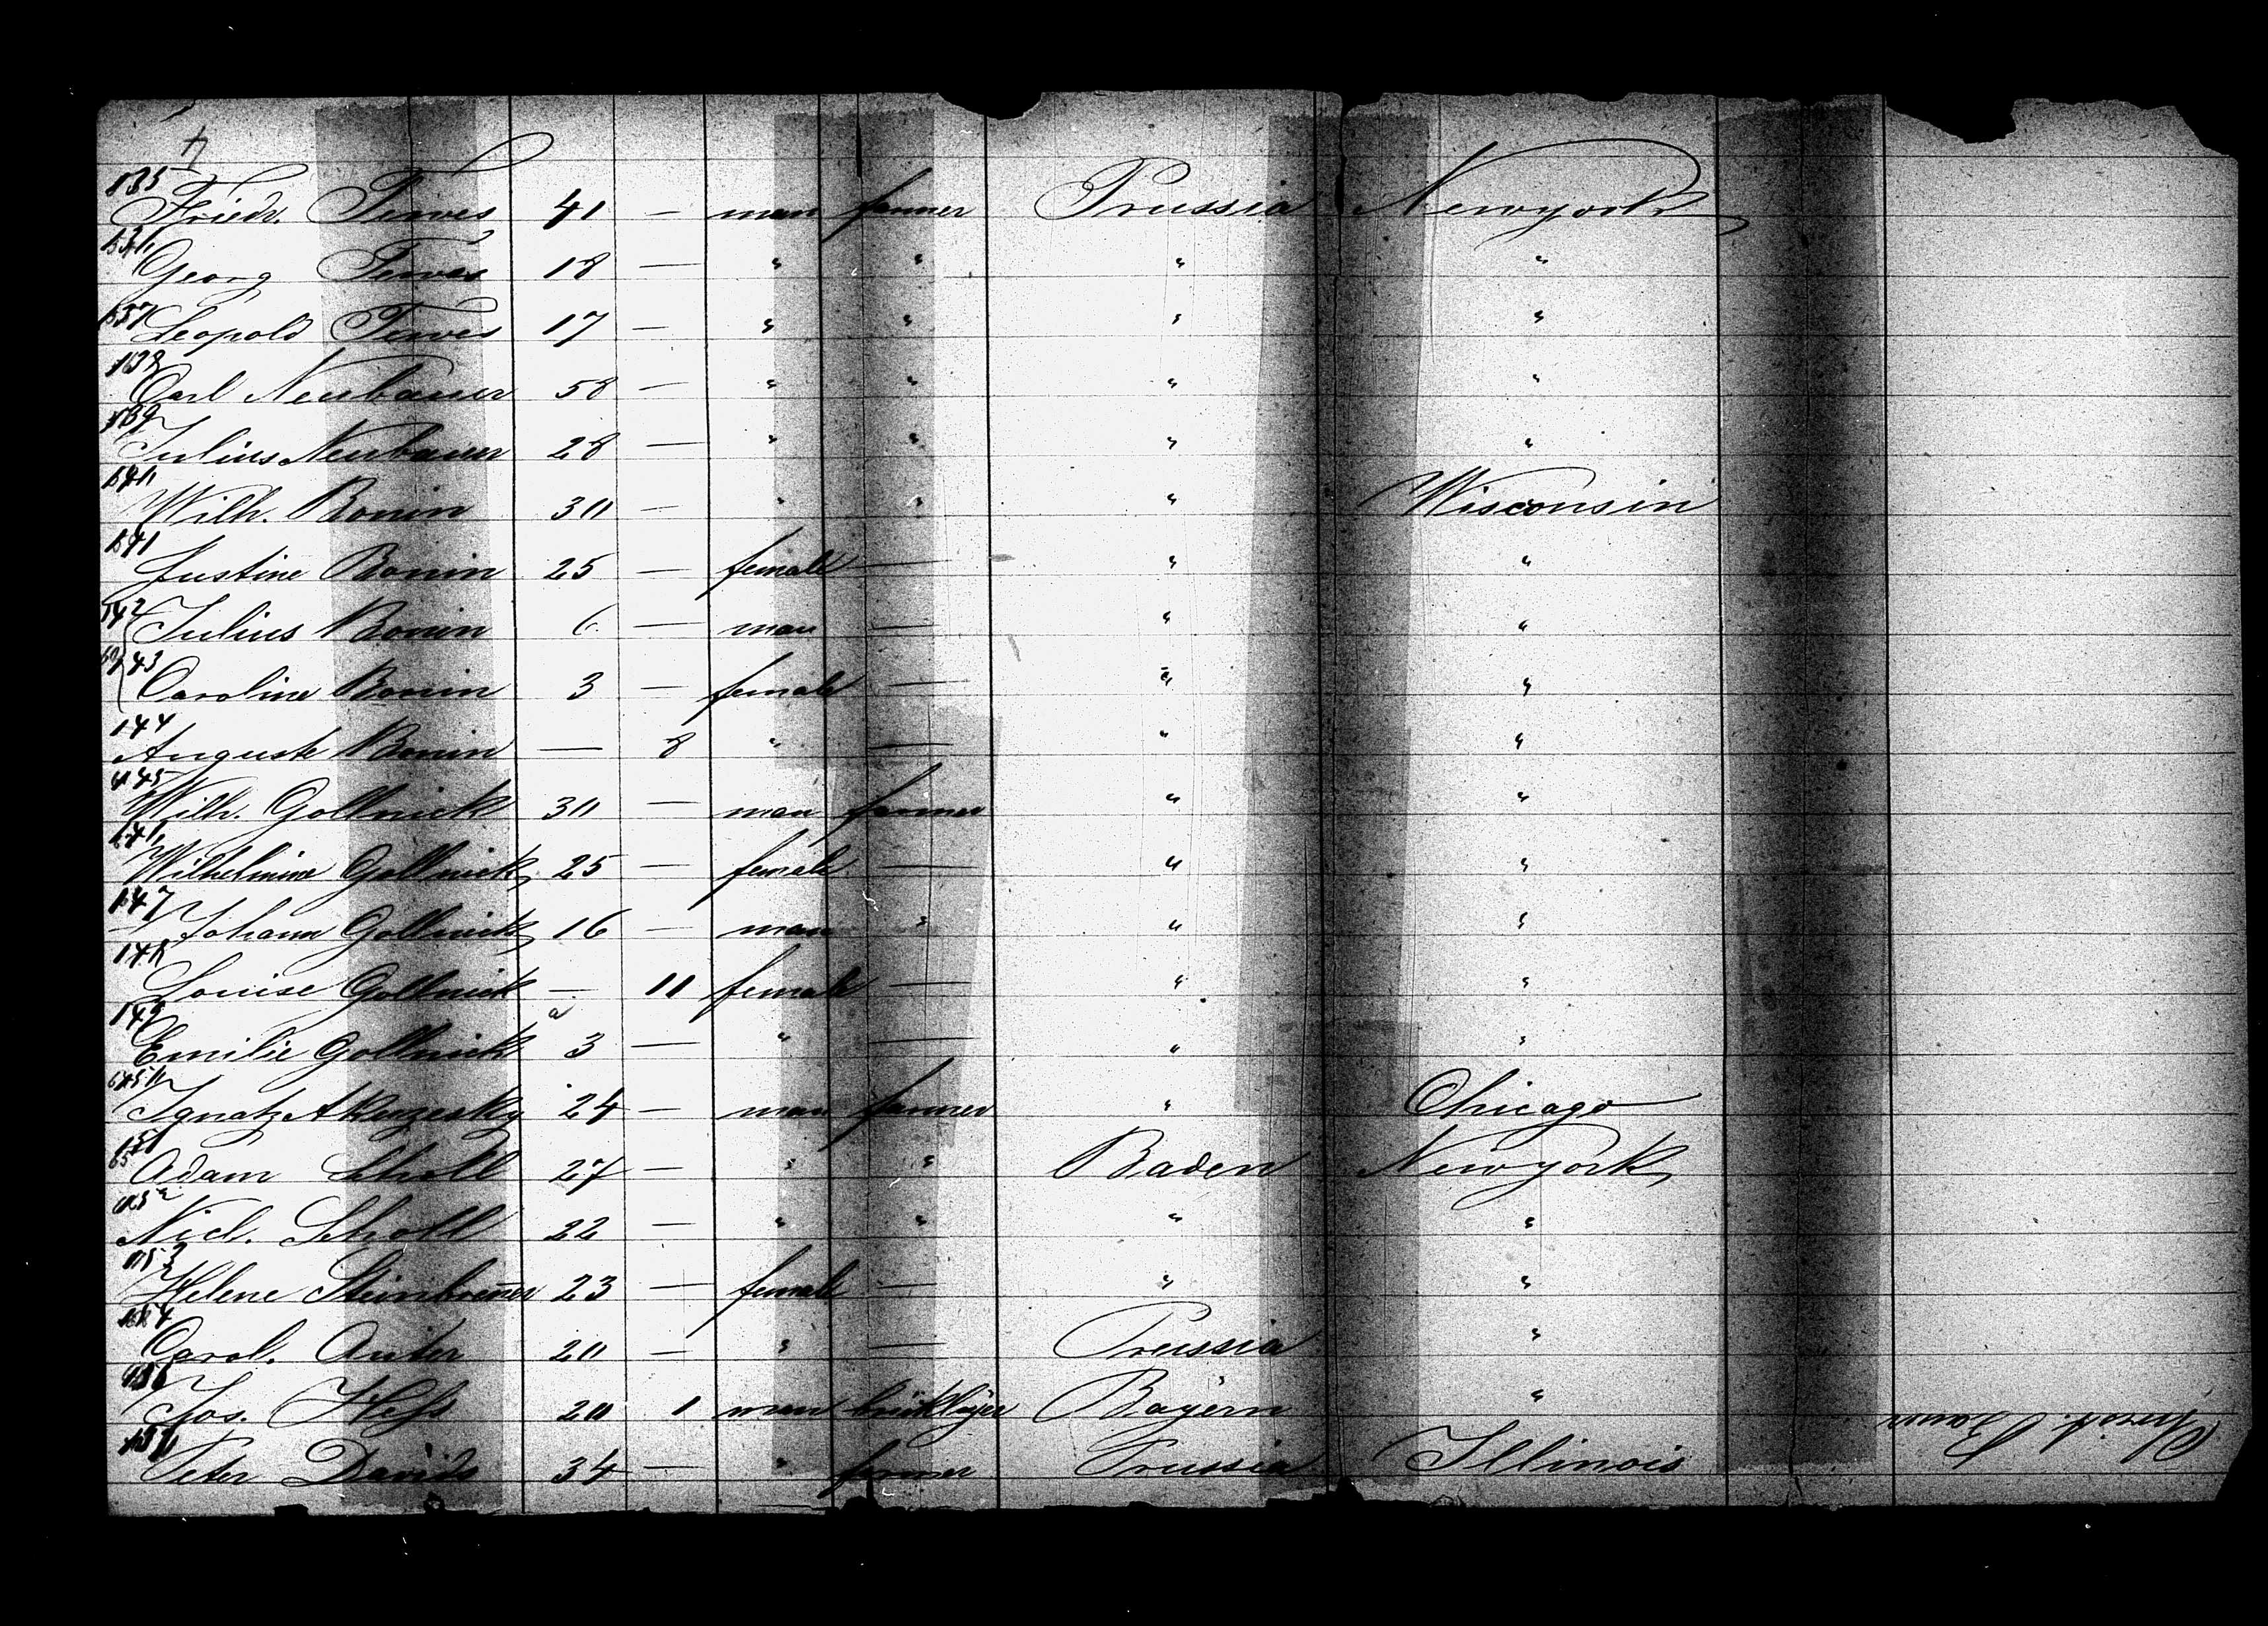 135
Friedr. Tewes 41 — man farmer Prussia Newyork
136
Georg Tewes 18 — " " " "
137
Leopold Tewes 17 — " " " "
138
Carl Neubauer 58 — " " " "
139
Julius Neubauer 28 — " " " "
140
Wilh. Bonin 30 — " " " Wisconsin
141
Justine Bonin 25 — female — " "
142
Julius Bonin 6 — man — " "
143
Caroline Bonin 3 — female — " "
144
Auguste Bonin — 8 " — " "
145
Wilh. Gollnick 30 — man farmer " "
146
Wilhelmine Gollnick 25 — female — " "
147
Johann Gollnick 16 — man " " "
148
Louise Gollnick — 11 female — " "
149
Emilie Gollnick 3 — " — " "
150
Ignatz 24 — man farmer " Chicago
151
Adam Scholl 27 — " " Baden Newyork
152
Nicl. Scholl 22 — " " " "
153
Helene Steinbrenner 23 — female — " "
154
Carol. Auter 20 — " — Prussia "
155
Jos. Heß 20 1 man bricklayer Bayern "
156
Peter Davids 34 — " farmer Prussia Illinois